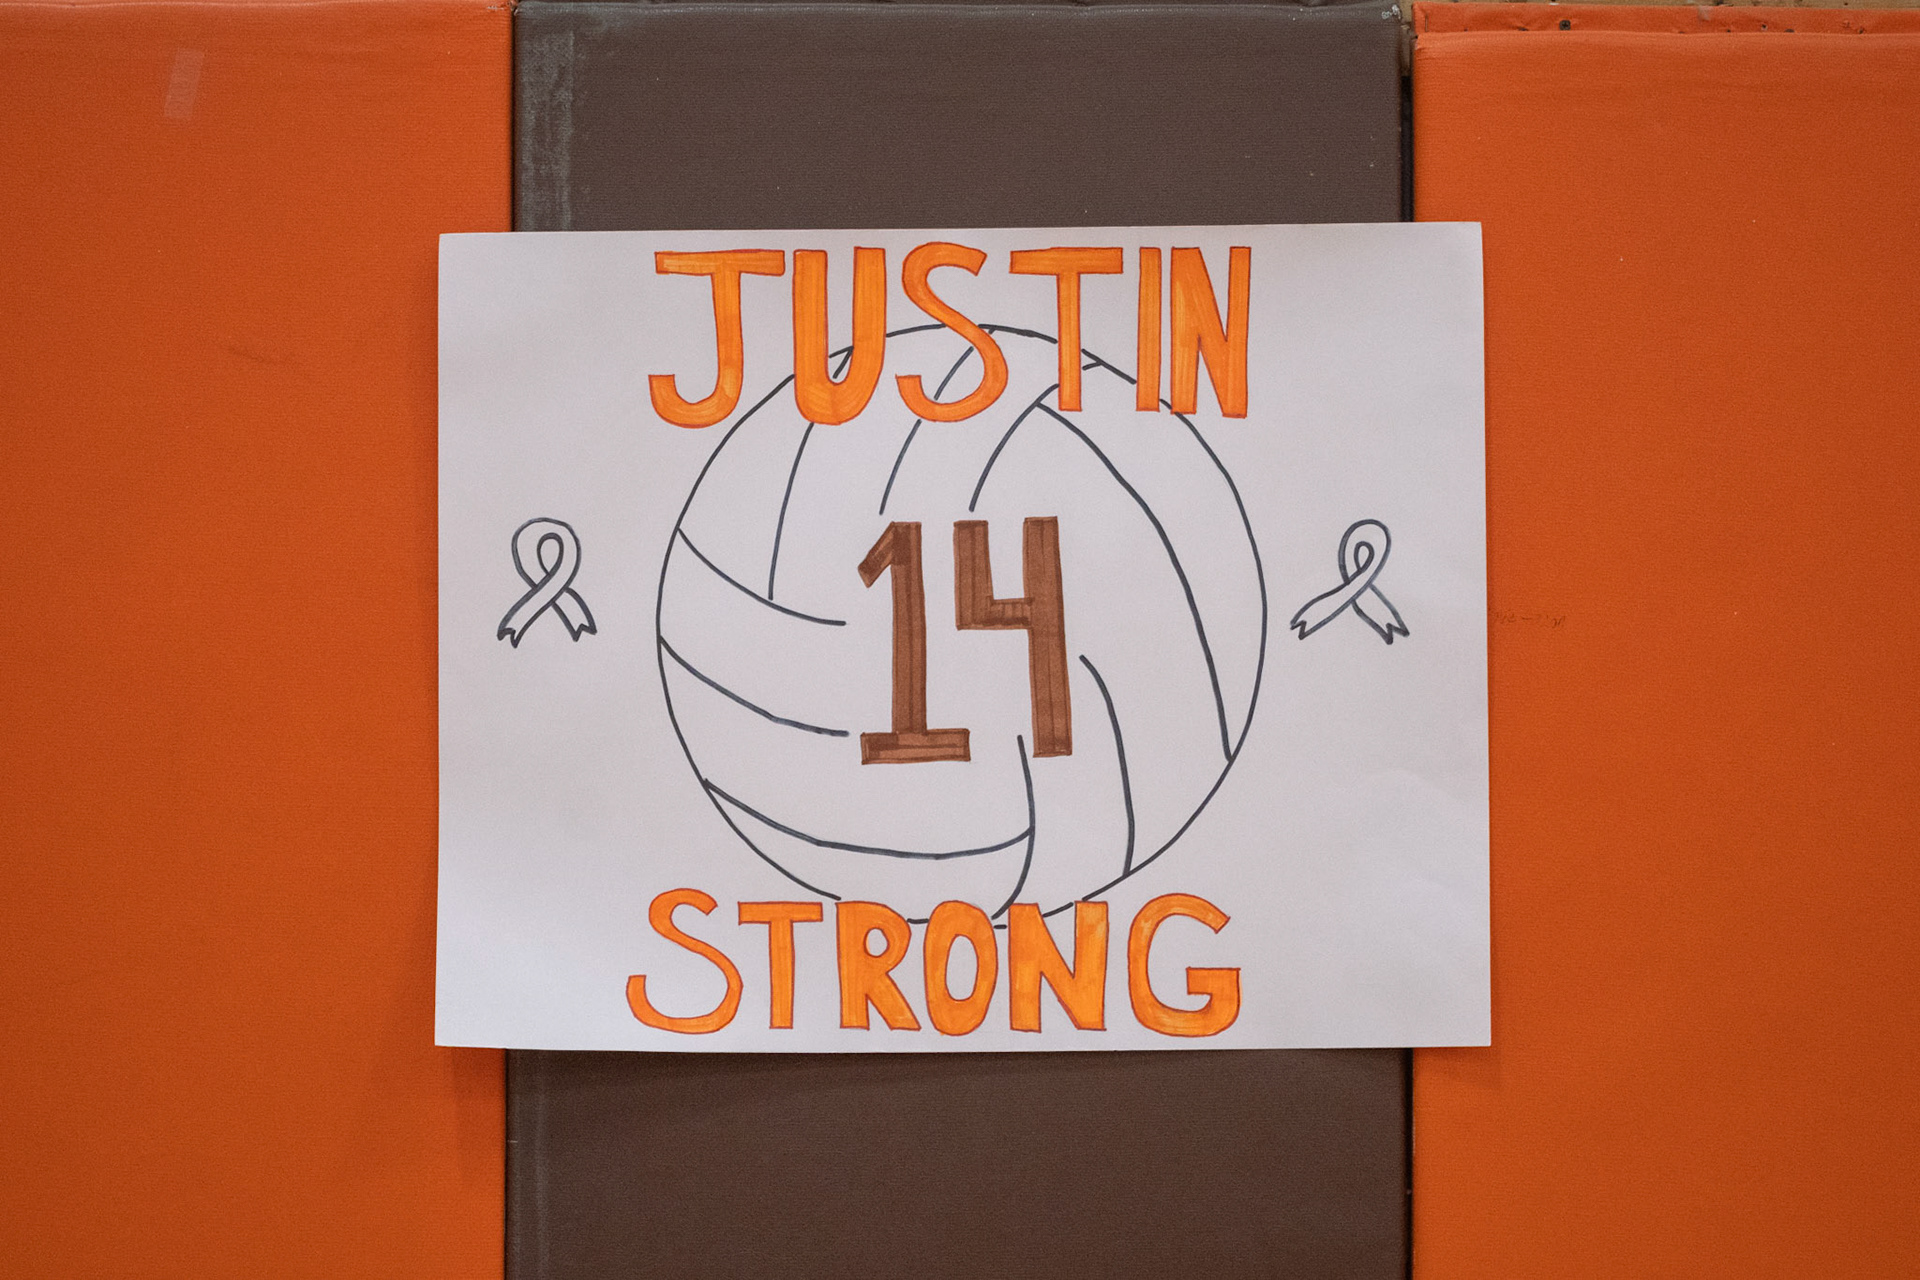 JUSTIN
14
STRONG